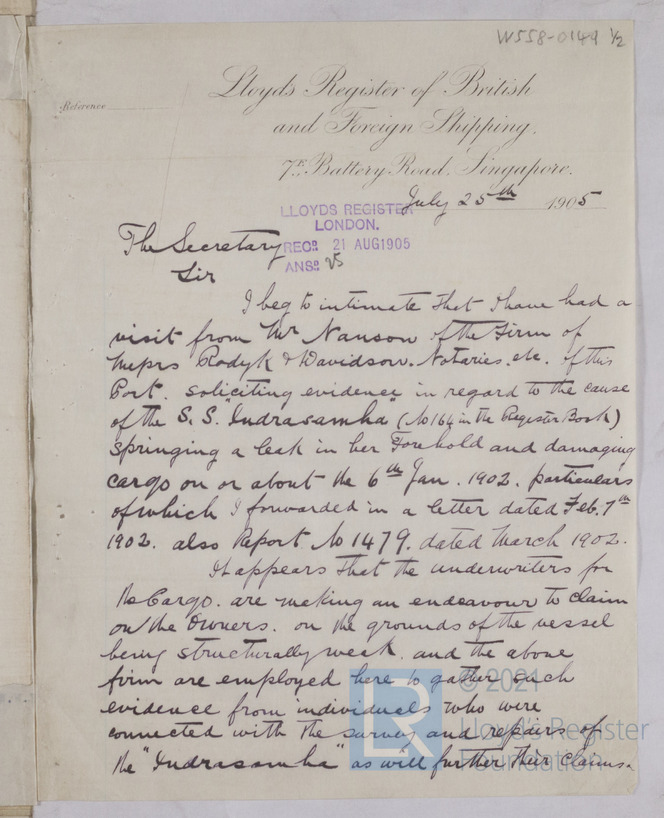 W558-0149 1/2
Lloyds Register of British
Reference
and Foreign Shipping.
7E Battery Road, Singapore.
July 25th 1905
LLOYDS REGISTER
LONDON.
The Secretary
RECD 21 AUG 1905
Sir
ANSD 25
I beg to intimate that I have had a
visit from Mr Nanson of the Firm of
Messrs Rodyk & Davidson. Notaries. etc. of this
Port. soliciting evidence in regard to the cause
of the S.S. "Indrasamha" (No 164 in the Register Book)
springing a leak in her Forehold and damaging
cargo on or about the 6th Jan. 1902. particulars
of which I forwarded in a letter dated Feb. 7th
1902. also Report No 1479. dated March 1902.
It appears that the underwriters for
the Cargo. are making an endeavour to claim
on the Owners. on the grounds of the vessel
being structurally weak. and the above
firm are employed here to gather such
evidence from individuals who were
connected with the survey and repairs of
the "Indrasamha" as will further their claims.
LR
© 2021
Lloyd's Register
Foundation